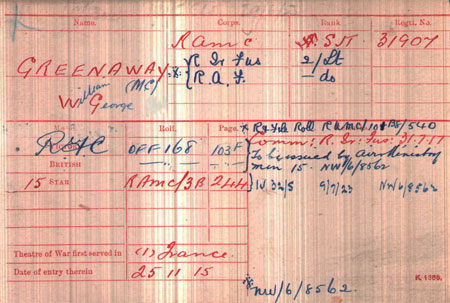 Name. Corps. Rank Regtl. No.
R A M C A. SJT 31907
GREENAWAY R Ir Fus 2/Lt
(MC) R. A. F. — do
William
W George
Roll. Page. * R & File Roll RAMC/101 B8/540
VICTORY R & F OFF 168 103F Comm: R. Ir: Fus: 31.7.17
BRITISH — " — — " — To be issued by Air Ministry
min 15. NW/6/8562
15 STAR RAMC/3B 244 IV 32/5 9/7/23 NW/6/8562
Theatre of War first served in (1) France.
Date of entry therein 25 11 15 K. 1380.
NW/6/8562.